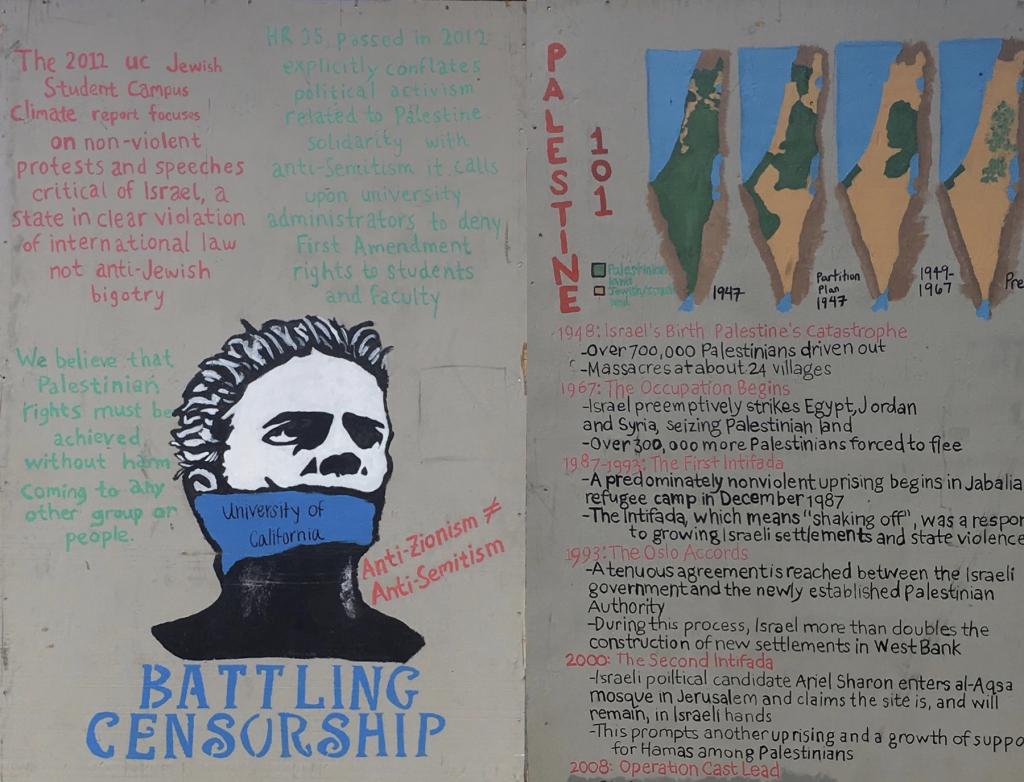 The 2012 UC Jewish
Student Campus
Climate report focuses
on non-violent
protests and speeches
critical of Israel, a
state in clear violation
of international law
not anti-Jewish
bigotry
HR 35, passed in 2012
explicitly conflates
political activism
related to Palestine
solidarity with
anti-Semitism it calls
upon university
administrators to deny
First Amendment
rights to students
and faculty
We believe that
Palestinian
rights must be
achieved
without harm
coming to any
other group or
people.
University of
California
Anti-Zionism ≠
Anti-Semitism
BATTLING
CENSORSHIP
PALESTINE
101
Palestinian
land
Jewish/
land
1947
Partition
Plan
1947
1949-
1967
Pre
1948: Israel's Birth Palestine's Catastrophe
-Over 700,000 Palestinians driven out
-Massacres at about 24 villages
1967: The Occupation Begins
-Israel preemptively strikes Egypt, Jordan
and Syria, seizing Palestinian land
-Over 300,000 more Palestinians forced to flee
1987-1993: The First Intifada
-A predominately nonviolent uprising begins in Jabalia
refugee camp in December 1987
-The Intifada, which means "shaking off", was a respon
to growing Israeli settlements and state violence
1993: The Oslo Accords
-A tenuous agreement is reached between the Israeli
government and the newly established Palestinian
Authority
-During this process, Israel more than doubles the
construction of new settlements in West Bank
2000: The Second Intifada
-Israeli poiltical candidate Ariel Sharon enters al-Aqsa
mosque in Jerusalem and claims the site is, and will
remain, in Israeli hands
-This prompts another uprising and a growth of suppo
for Hamas among Palestinians
2008: Operation Cast Lead